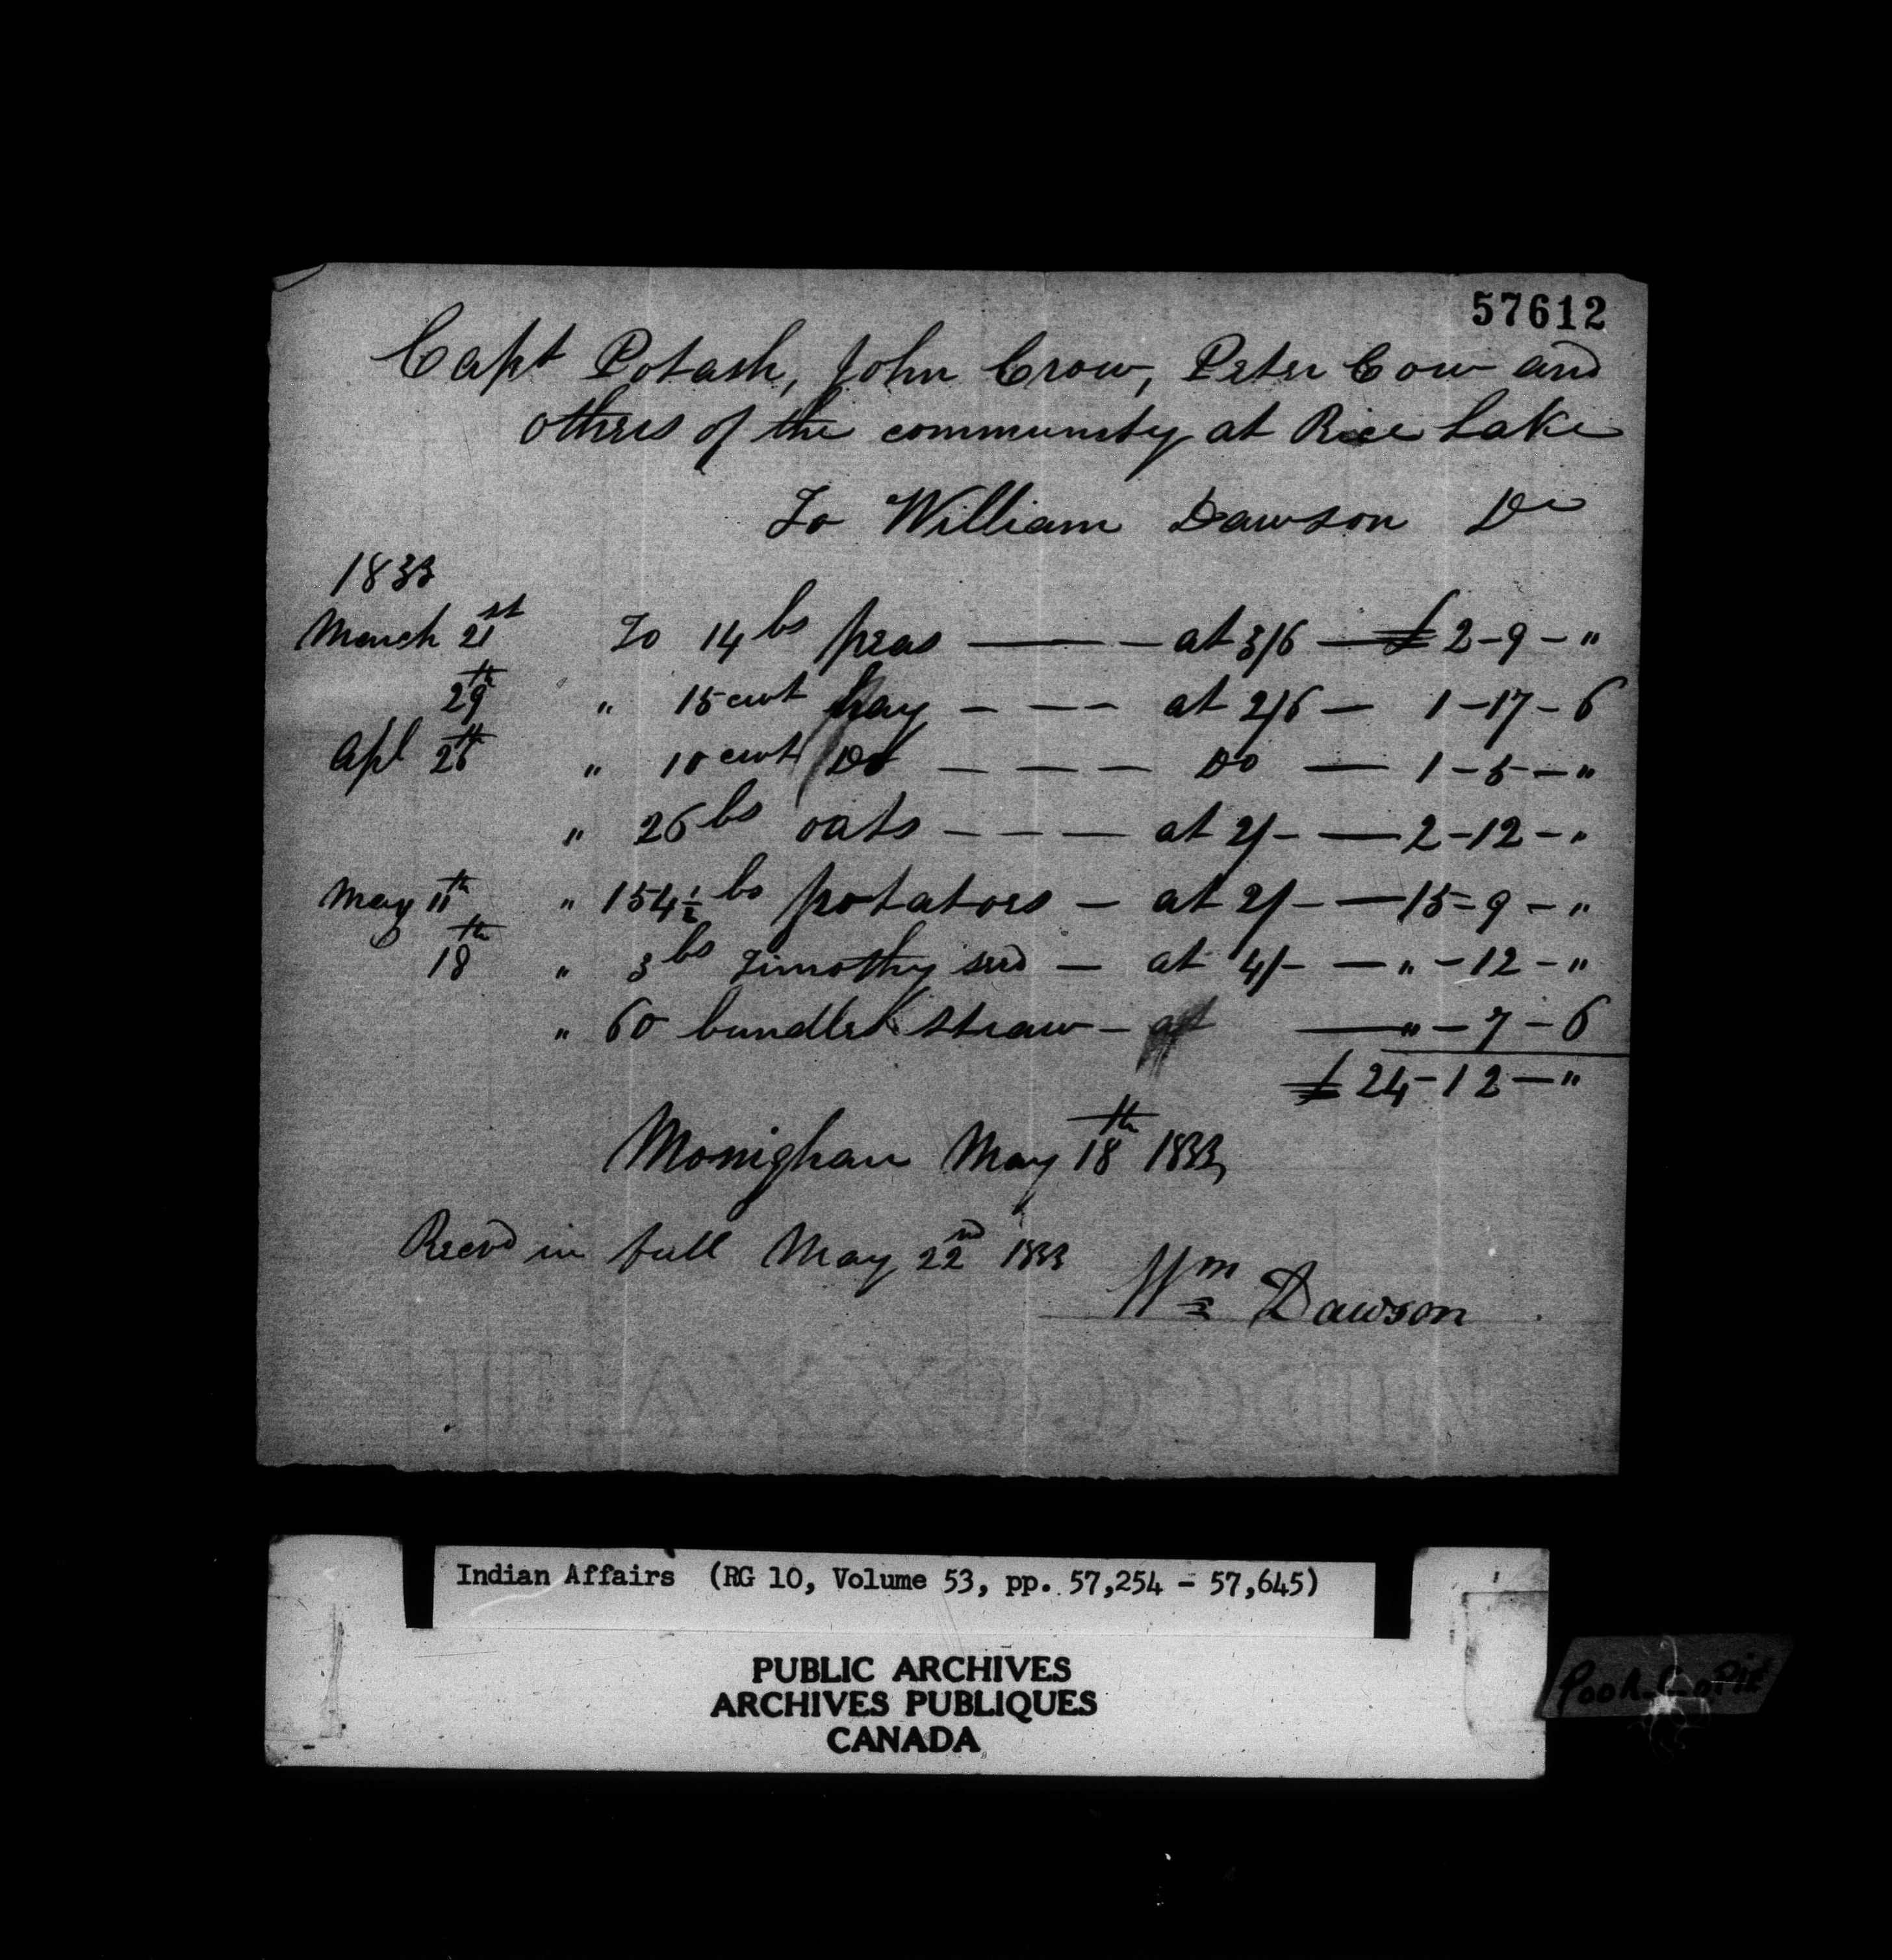 57612
Capt Potash, John Crow, Peter Cow and
others of the community at Rice Lake
To William Dawson Dr
1833
March 21st To 14 bs peas — at 3/6 — £ 2-9-"
29th " 15 cwt hay - - - at 2/6 — 1-17-6
Apl 26th " 10 cwt Do - - - Do — 1-5-"
" 26 bs oats - - - at 2/- — 2-12-"
May 11th " 154½ bs potatoes - at 2/- — 15-9-"
18th " 3 bs Timothy seed — at 4/- — "-12-"
" 60 bundles straw - at — "-7-6
£ 24-12-"
Monighan May 18th 1833
Recvd in full May 22nd 1833
Wm Dawson
Indian Affairs (RG 10, Volume 53, pp. 57,254 - 57,645)
PUBLIC ARCHIVES
ARCHIVES PUBLIQUES
CANADA